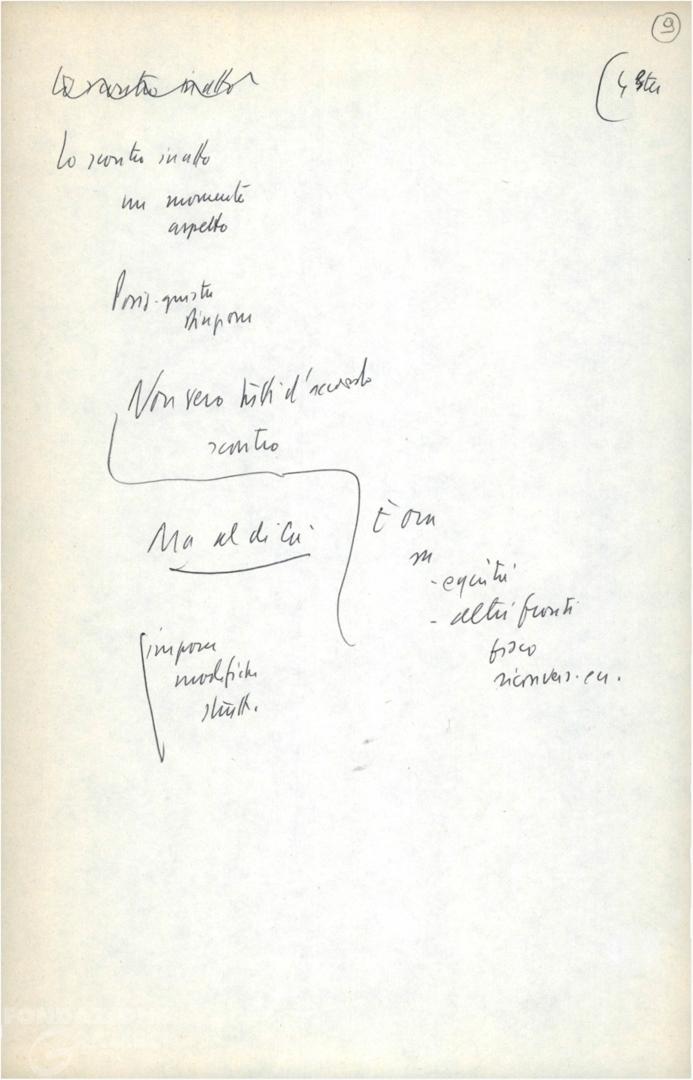 9
Lo scontro in atto
Lo scontro in atto
un momento
aspetto
Non vero tutti d'accordo
scontro
Ma al di là
È ora
su
- equità
- altri fronti
fisco
riconvers. ec.
imporre
modifiche
strutt.
FONDAZIONE